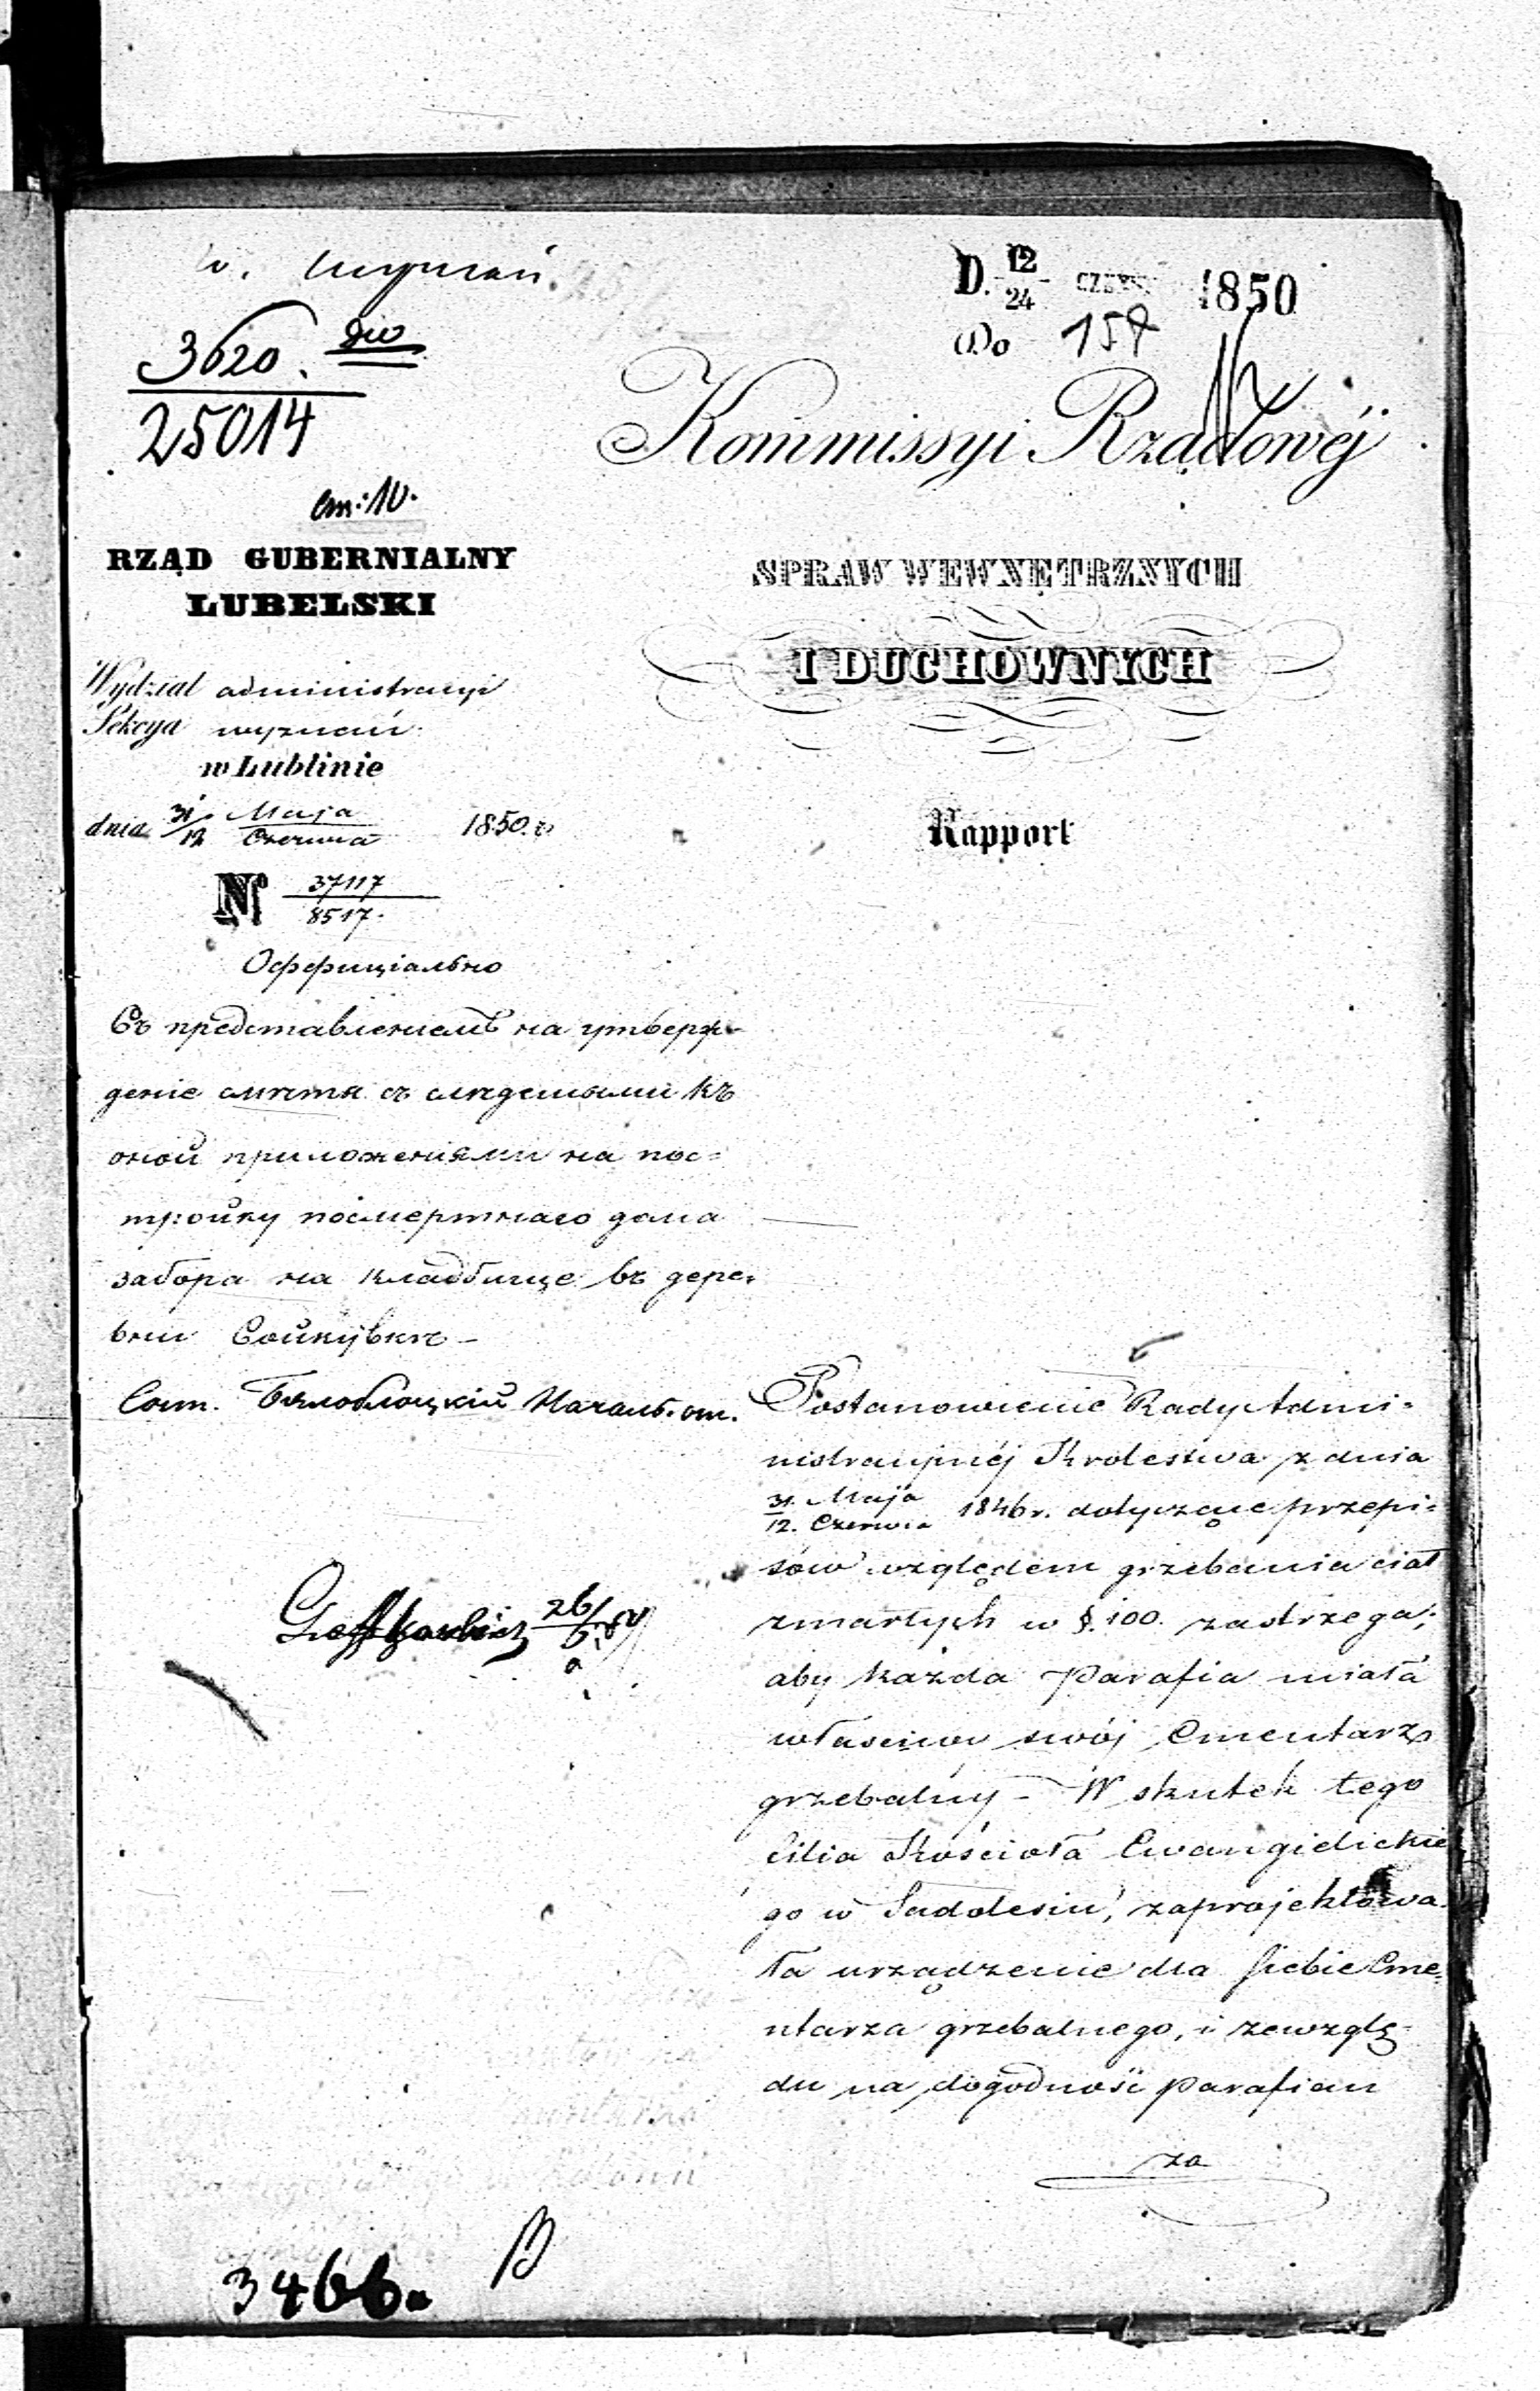 w. wyznań.
3620. dio
25014
em: 10.
RZĄD GUBERNIALNY
LUBELSKI
Wydział administracyi
Sekcya wyznań
w Lublinie
dnia 31/12 Maja/Czerwca 1850. r.
N 37117
8517.
Оффиціально
Съ представленіемъ на утверж-
деніе смѣты съ слѣдешыми къ
оной приложеніями на пос=
тройку посмертнаго дома
забора на кладбище въ дере-
вни
Сот. Бялоблоцкій Началь. от.
26
D. 12/24 CZERW. 1850
Do 157
Kommissyi Rządowéj
SPRAW WEWNĘTRZNYCH
I DUCHOWNYCH
Rapport
Postanowienie Rady Admi=
nistracyjnéj Krolestwa z dnia
31. Maja/12. Czerwca 1846 r. dotyczące przepi=
sów względem grzebania ciał
zmarłych w §. 100. zastrzega;
aby każda Parafia miała
właściwy swój Cmentarz
grzebalny – W skutek tego
filia Kościoła Ewangielickie
go w Sadolesiu, zaprojektowa
ła urządzenie dla siebie Cme=
ntarza grzebalnego, i zewzglę-
du na dogodność parafian
za
3466.